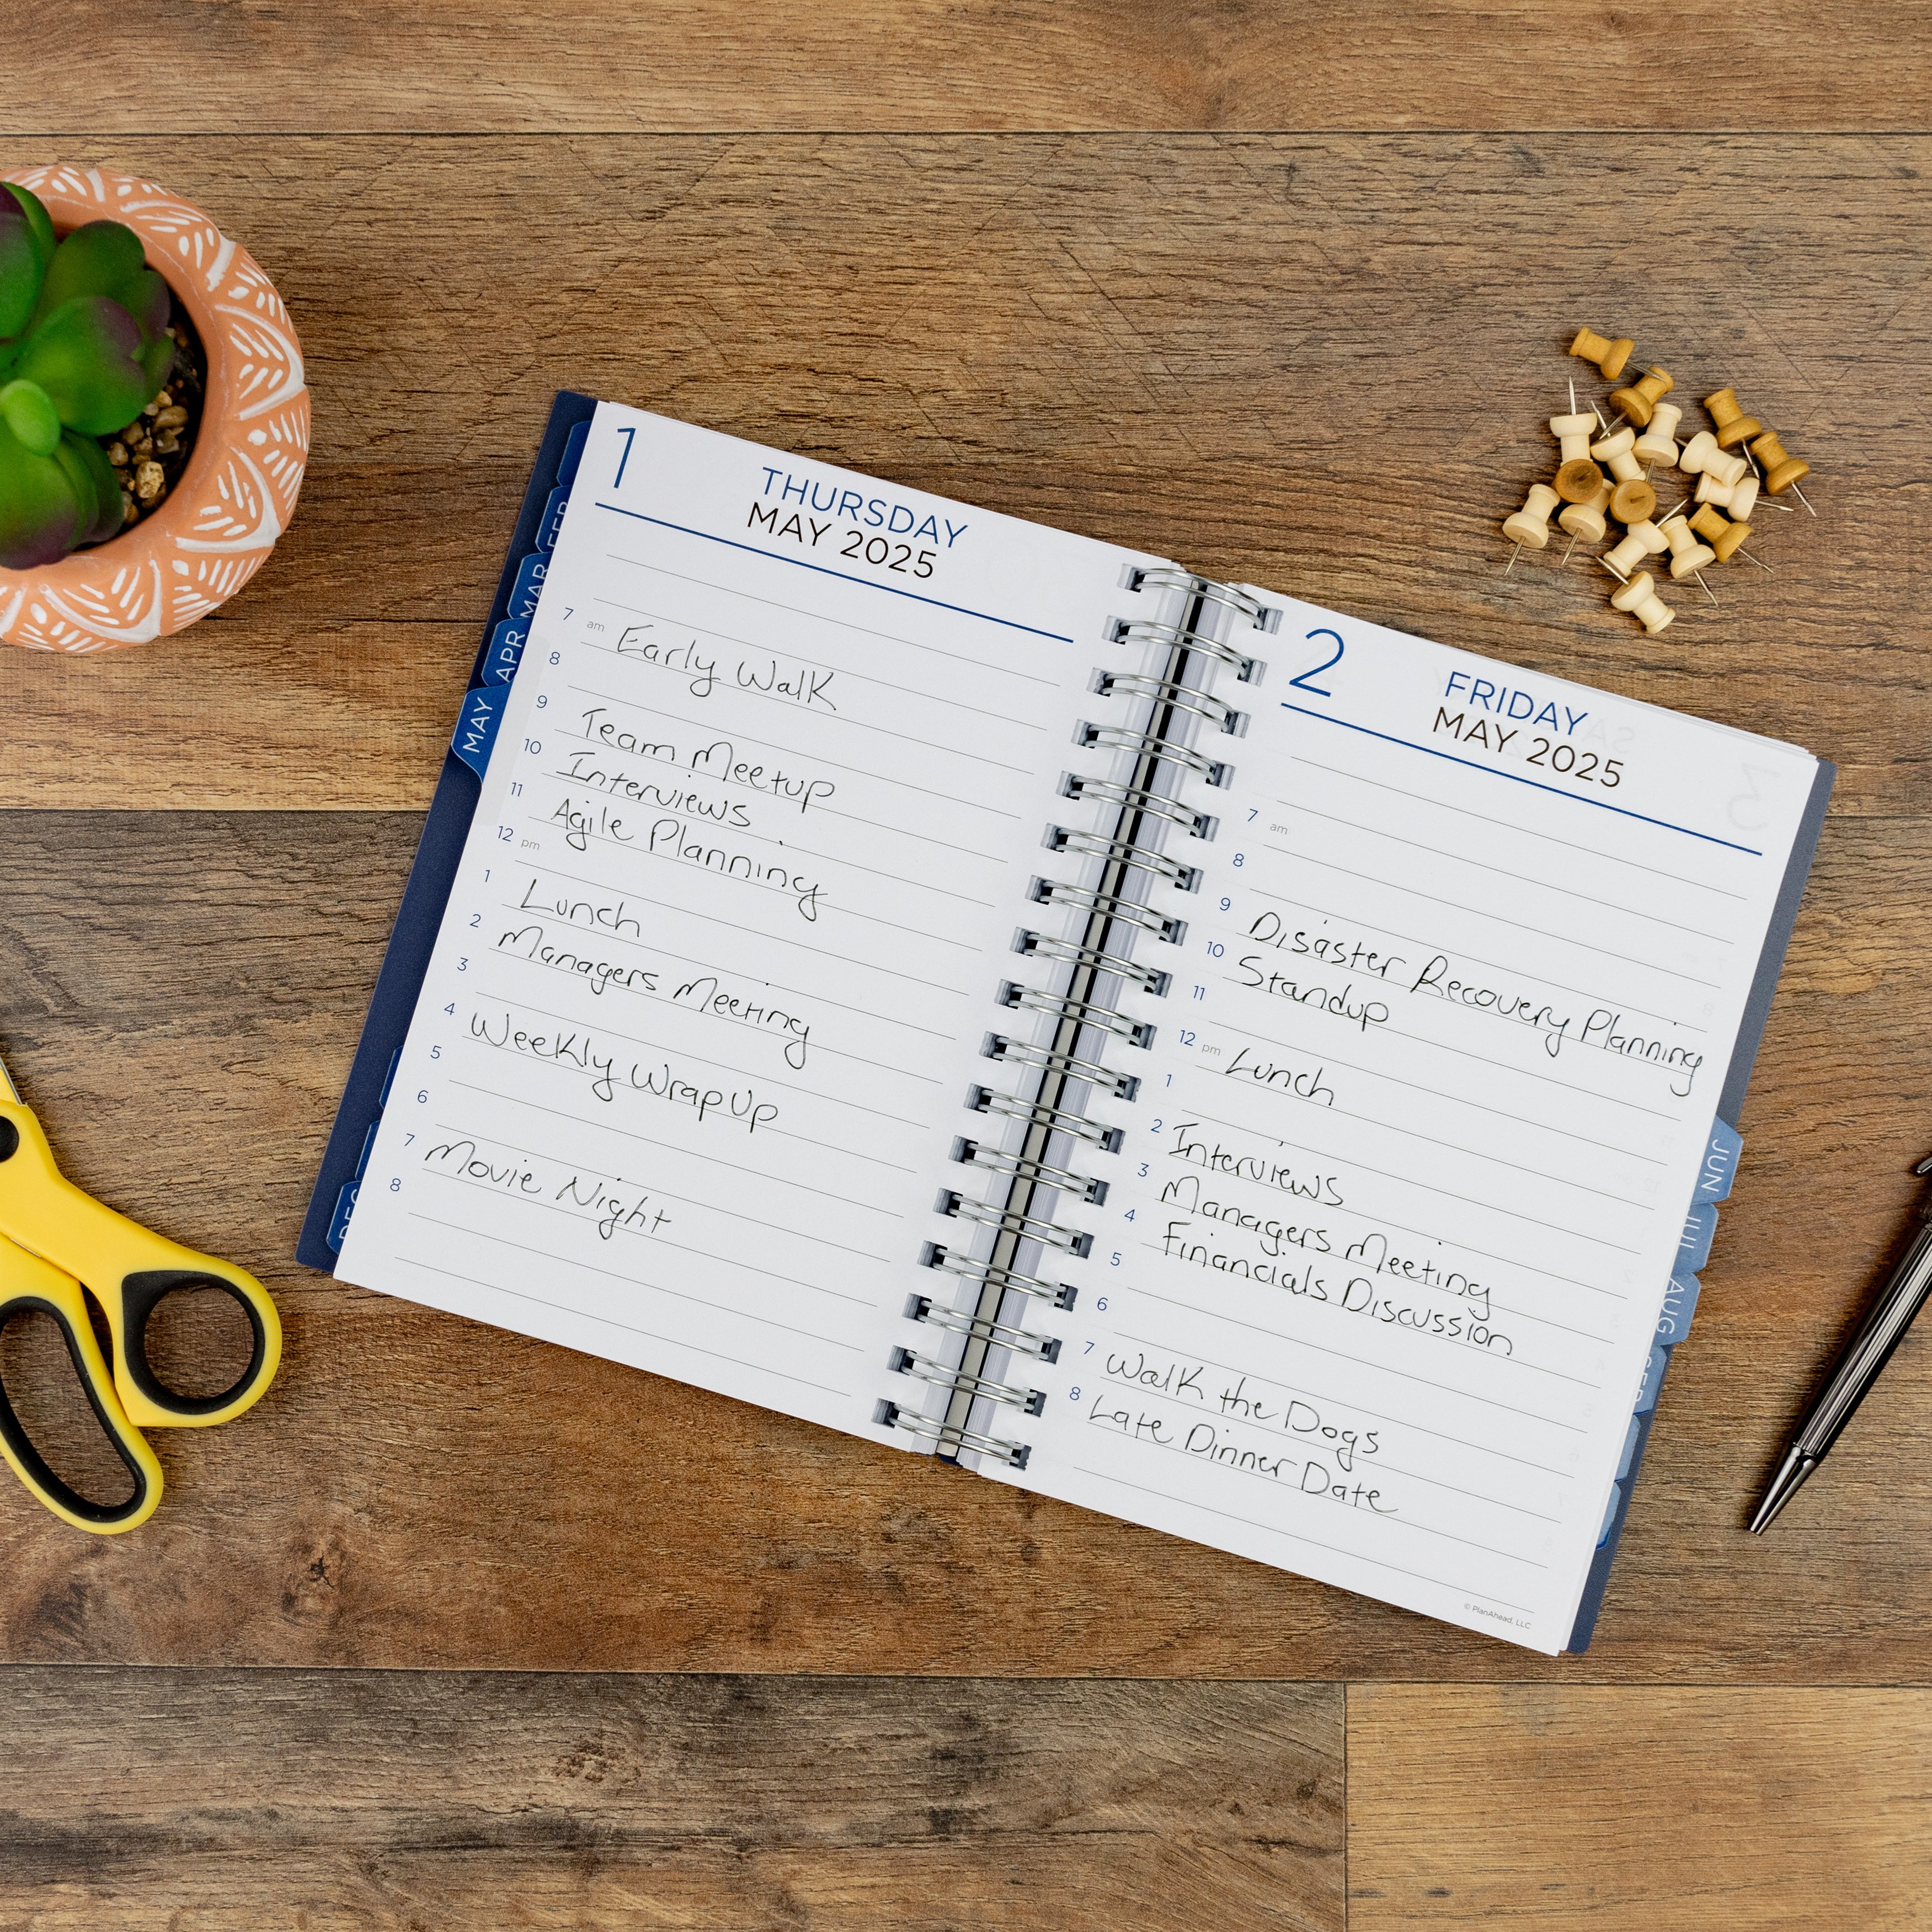 1
THURSDAY
MAY 2025
7 am Early Walk
8
9 Team Meetup
10 Interviews
11 Agile Planning
12 pm
1 Lunch
2 Managers Meeting
3
4 Weekly Wrap Up
5
6
7 Movie Night
8
FEB
MAR
APR
MAY
DEC
2
FRIDAY
MAY 2025
7 am
8
9 Disaster Recovery Planning
10 Standup
11
12 pm Lunch
1
2 Interviews
3 Managers Meeting
4 Financials Discussion
5
6
7 Walk the Dogs
8 Late Dinner Date
© PlanAhead, LLC
JUN
JUL
AUG
SEP